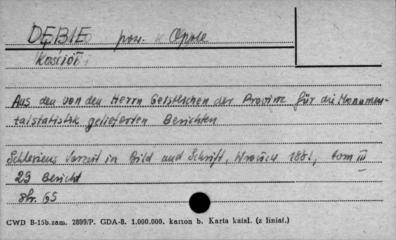 DĘBIE pow. Opole
Kościół
Aus den von den Herrn Geistlichen der Provinz für die Monumen-
talstatistik gelieferten Berichten
Schlesiens Vorzeit in Bild und Schrift, Wrocław 1881, tom III
29 Bericht
str. 65
CWD B-15b. zam. 2899/P. GDA-8. 1.000.000. karton b. Karta katal. (z liniat.)